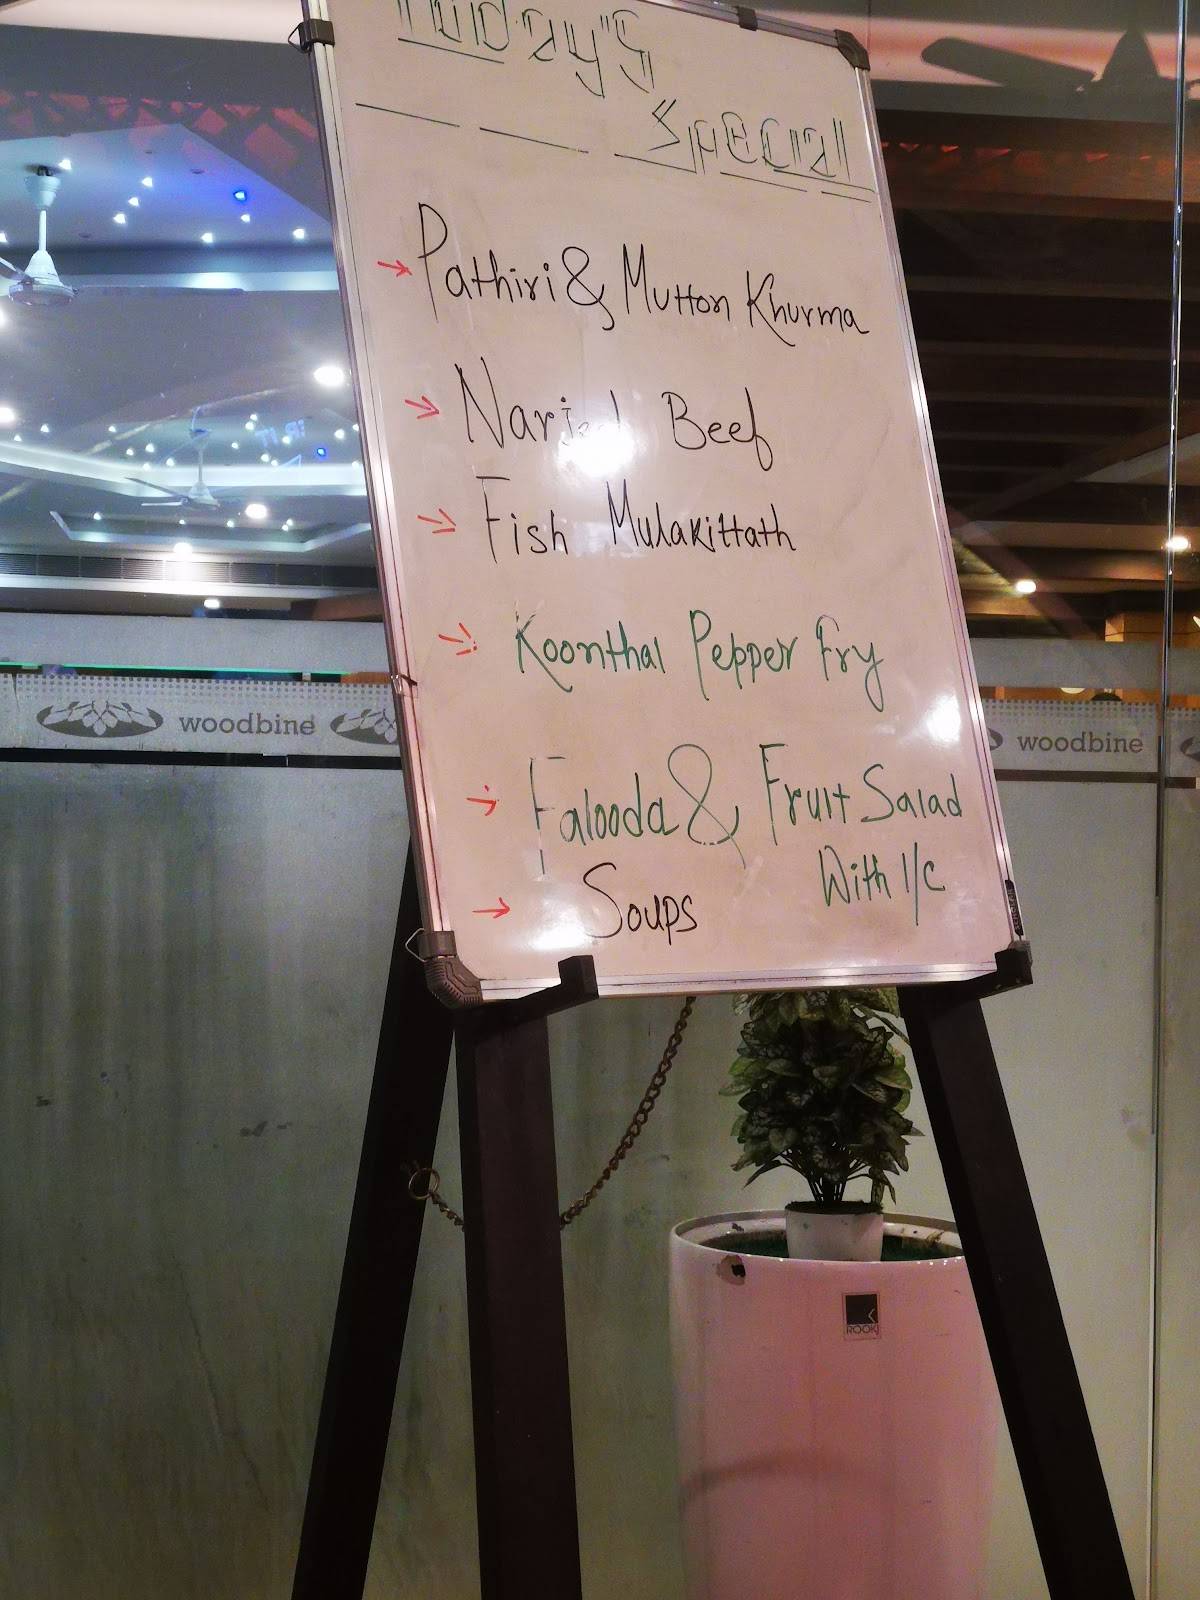 Today's
Special
Pathiri & Mutton Khurma
Beef
Fish Mulakittath
Koonthal Pepper Fry
Falooda & Fruit Salad
With I/C
Soups
woodbine
woodbine
ROOK